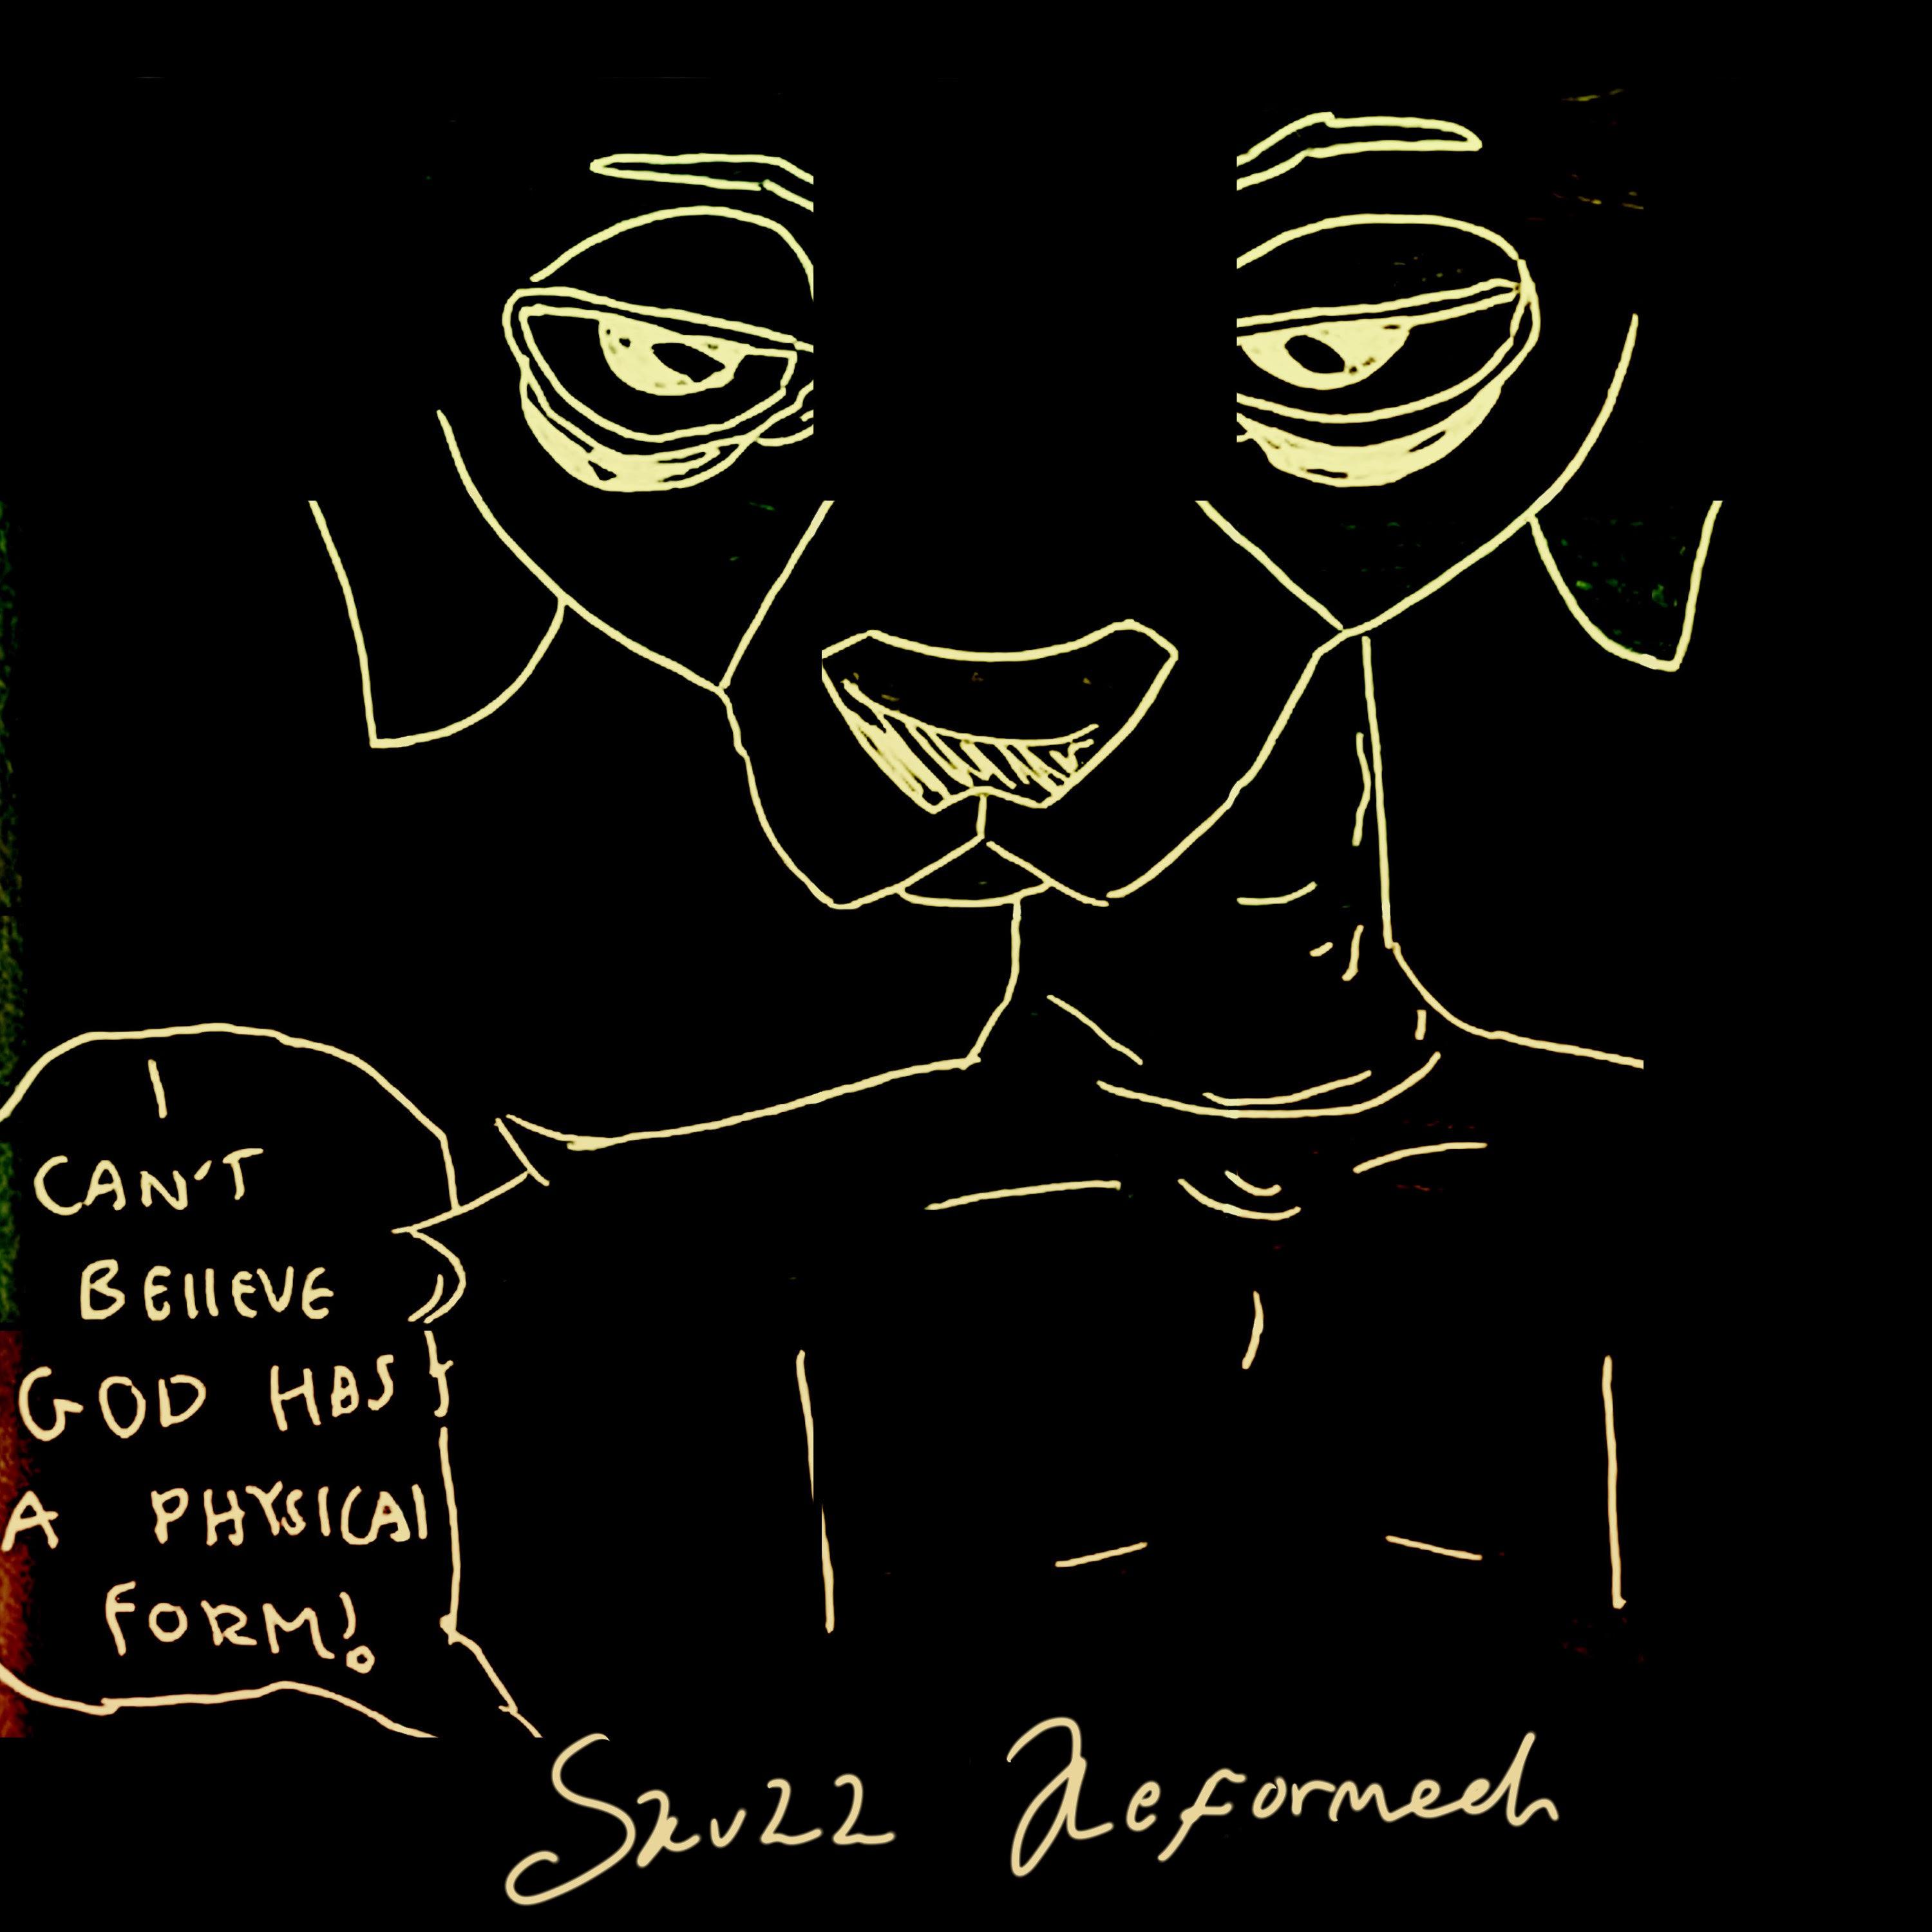 I
CAN'T
BELIEVE
GOD HAS
A PHYSICAL
FORM!
Skuzz Reformed